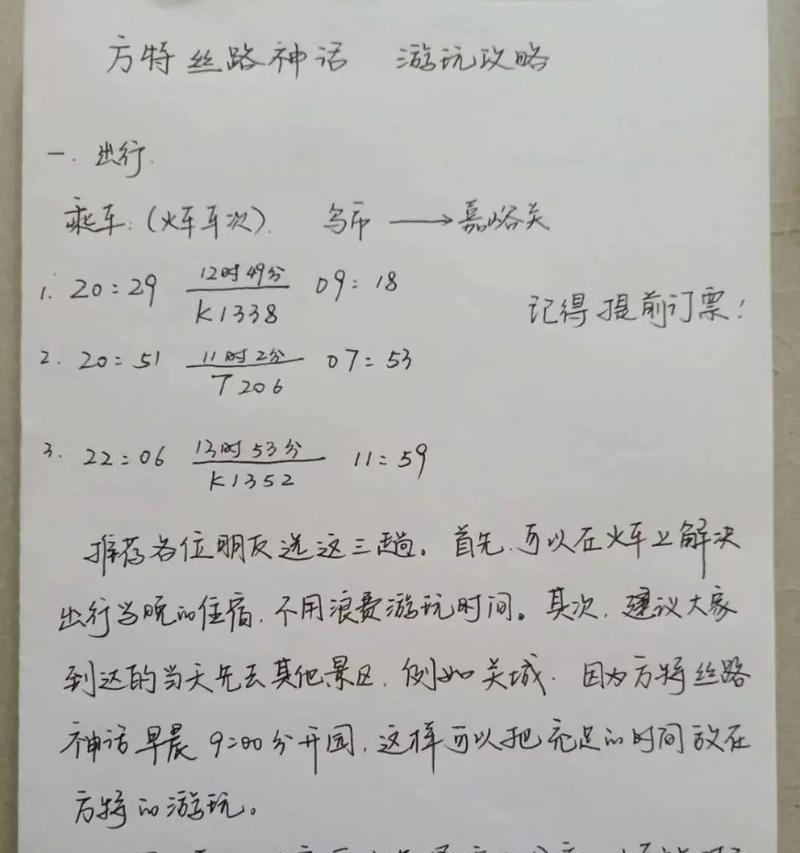 方特丝路神话 游玩攻略
一.出行.
乘车:(火车车次). 乌市 ⟶ 嘉峪关
1. 20:29 12时49分 K1338 09:18
记得提前订票!
2. 20:51 11时2分 T206 07:53
3. 22:06 13时53分 K1352 11:59
推荐各位朋友选这三趟。首先,可以在火车上解决
出行当晚的住宿,不用浪费游玩时间。其次,建议大家
到达的当天先去其他景区,例如关城.因为方特丝路
神话早晨9:00分开园,这样可以把充足的时间放在
方特的游玩。